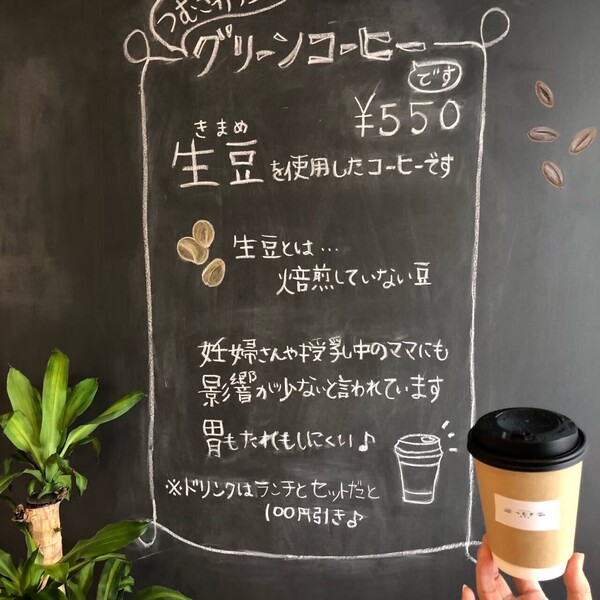 グリーンコーヒー
です
¥550
きまめ
生豆を使用したコーヒーです
生豆とは…
焙煎していない豆
妊婦さんや授乳中のママにも
影響が少ないと言われています
胃もたれもしにくい♪
※ドリンクはランチとセットだと
100円引き♪